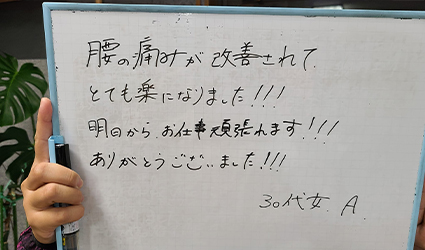 腰の痛みが改善されて
とても楽になりました!!!
明日からお仕事頑張れます!!!
ありがとうございました!!!
30代女. A.